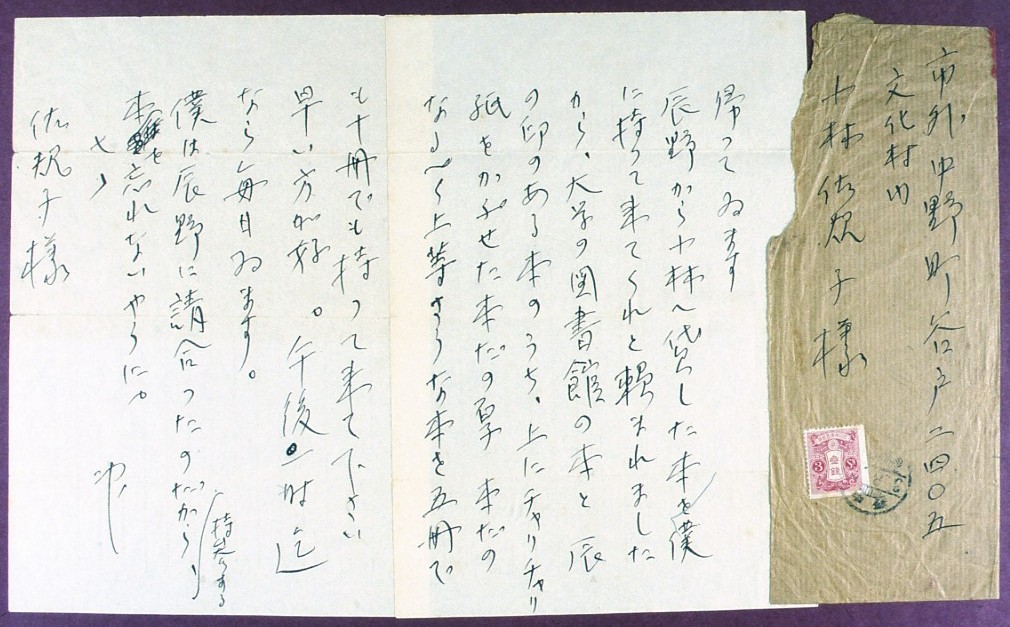 市外 中野町谷戸二四〇五
文化村内
小林佐規子様
3 3
参銭
帰ってゐます
辰野から小林へ貸した本を僕
に持って来てくれと頼まれました
から、大学の図書館の本と 辰
の印のある本のうち、上にチャリチャリ
紙をかぶせた本だの厚 本だの
なるべく上等さうな本を五冊で
も十冊でも持って来て下さい
早い方が好。午後一時迄
なら毎日ゐます。
僕は辰野に請合ったのだから
持参する
本を忘れないやうに。
佐規子様